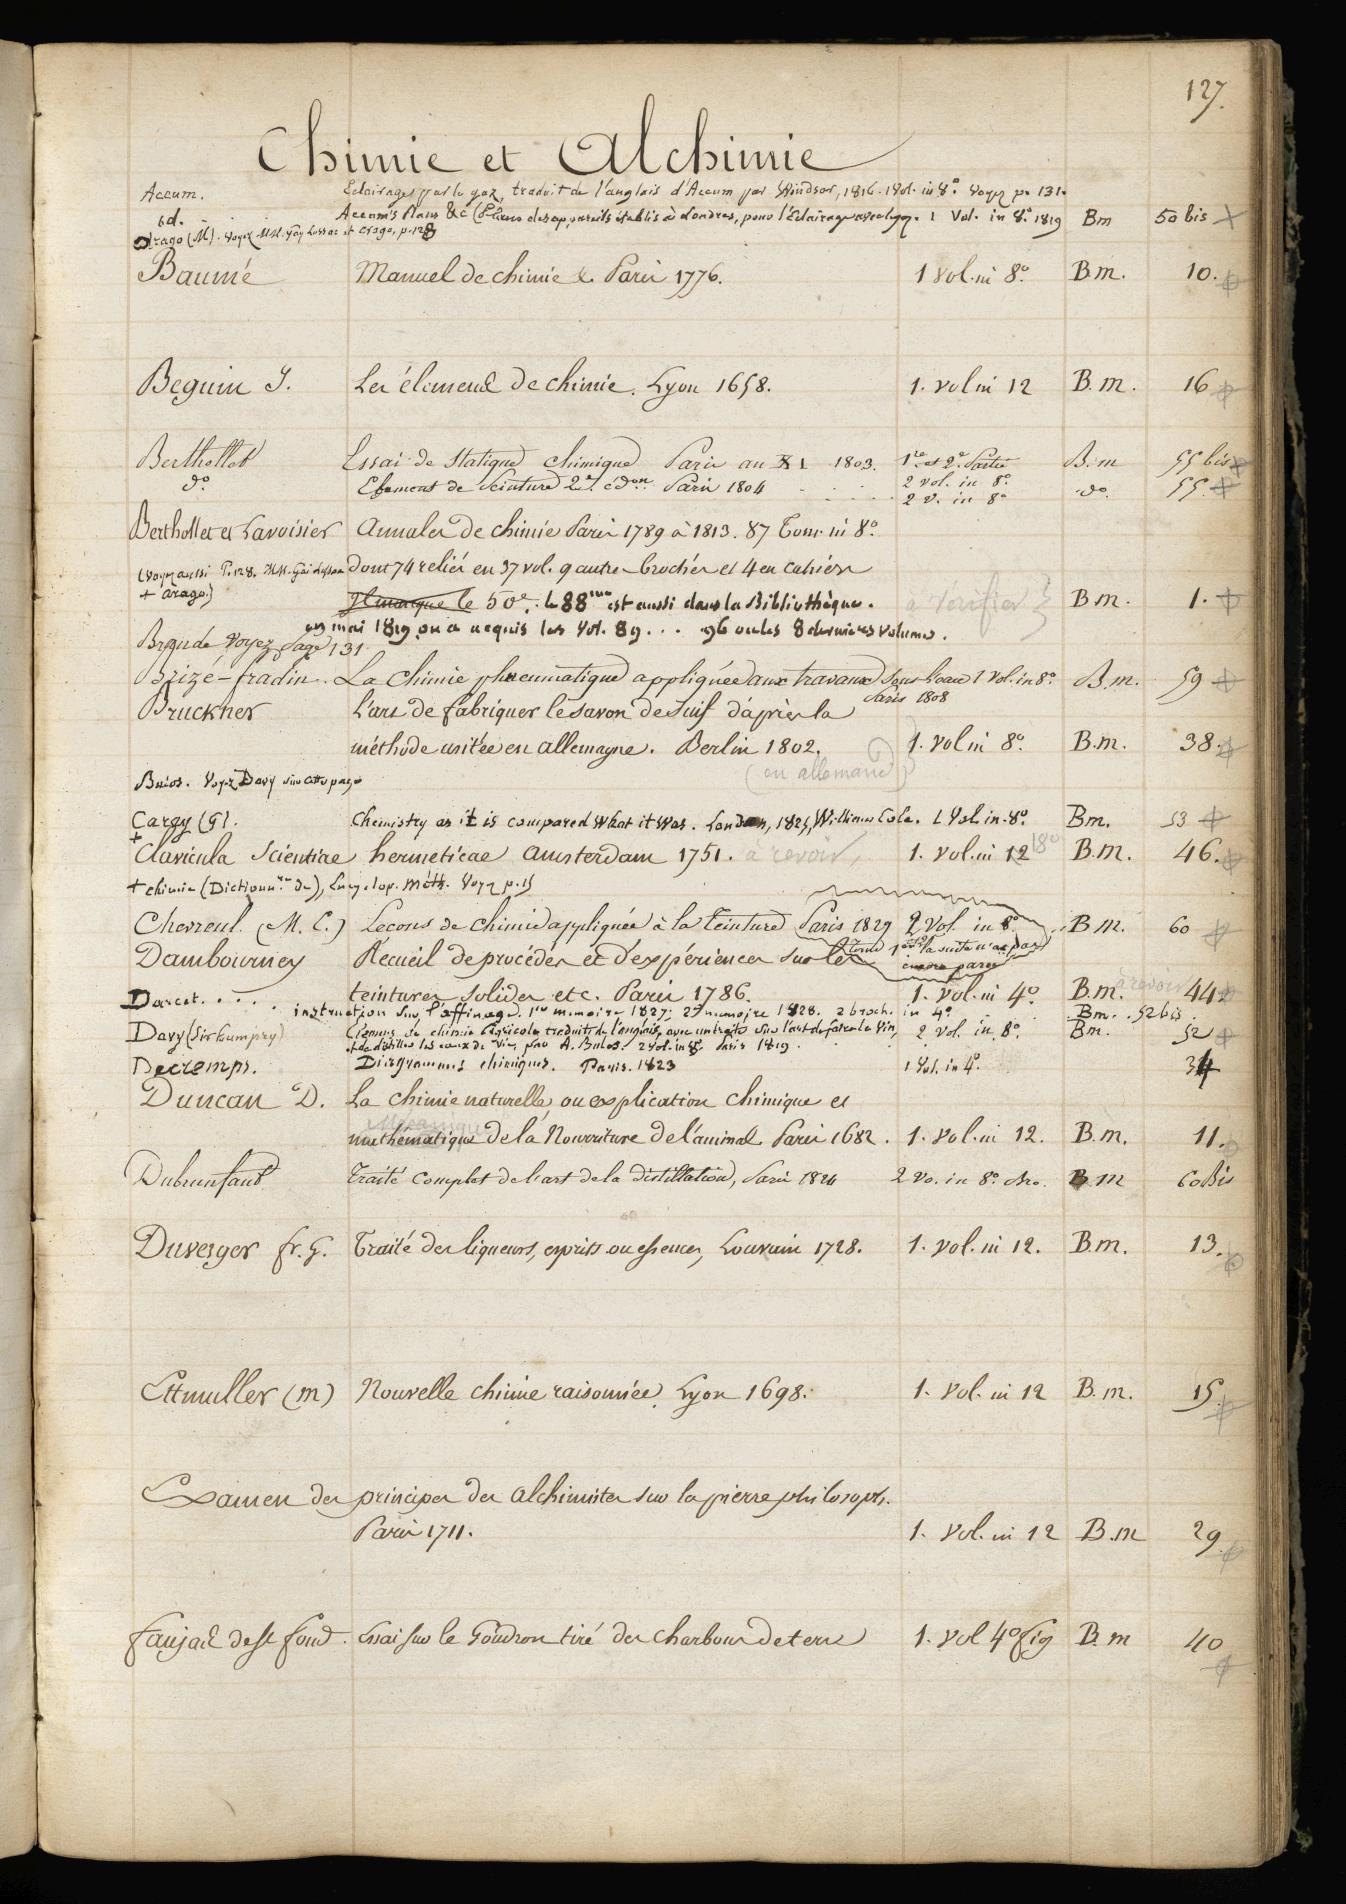 127.
Chimie et Alchimie
Accum. Eclairages par le gaz, traduit de l'anglais d'Accum par Windsor, 1816. 1 Vol. in 8.° Voyez p. 131.
id. Accum's Plans &c (Plans des appareils établis à Londres, pour l'Eclairage avec le gaz. 1 Vol. in 8.° 1819 Bm 50 bis
Arago (M). Voyez MM. Gay Lussac et Arago, p. 128
Baumé Manuel de chimie &. Paris 1776. 1 vol. in 8.° B.m. 10.
Beguin J. Les élemens de chimie. Lyon 1658. 1. vol in 12 B.m. 16
Berthollet Essai de Statique chimique Paris an XI 1803. 1re et 2e Partie B.m 55 bis
2 vol. in 8°
d° Elemens de Teinture 2e édon Paris 1804 2 v. in 8° d° 55.
Berthollet et Lavoisier Annales de chimie Paris 1789 à 1813. 87 Tom. in 8°.
(Voyez aussi P. 128. MM. Gai Lussac dont 74 reliés en 37 vol. 9 autres brochés et 4 en cahiers
+ Arago.) Il manque le 50e. Le 88me est aussi dans la Bibliothèque. à vérifier B.m. 1.
en mai 1819 on a acquis les Vol. 89 . . . 96 ou les 8 derniers volumes.
Brande Voyez Page 131
Brizé-fradin. La Chimie pneumatique appliquée aux travaux sous l'eau 1 Vol. in 8° B.m. 59
Paris 1808
Bruckner L'art de fabriquer le savon de Suif d'après la
méthode usitée en allemagne. Berlin 1802. 1. vol in 8.° B.m. 38.
(en allemand)
Bulos. Voyez Davy sur cette page
Carey (G). Chemistry as it is compared What it Was. London, 1825, William Cole. 1 Vol. in-8° Bm. 53
+
Clavicula Scientiae hermeticae amsterdam 1751. à revoir, 1. vol. in 12 18° B.m. 46.
+ chimie (Dictionnre de), Encyclop. Méth. Voyez p. 15
Chevreul. (M. E.) Lecons de chimie appliquée à la Teinture Paris 1829 2 Vol. in 8.° B.m. 60
Dambourney Recueil de procédés et d'expériences sur les
teintures solides etc. Paris 1786. 1. vol. in 4° B.m. à revoir 44
Darcet . . . . instruction sur l'affinage. 1er mémoire 1827; 2e mémoire 1828. 2 broch. in 4° Bm. . 52 bis
Davy (Sir humpry) Elémens de chimie Agricole traduits de l'anglais, avec un traité sur l'art de faire le Vin, 2 vol. in 8°. Bm. 52
et de distiller les eaux de Vie, par A. Bulos. 2 vol. in 8° Paris 1819.
Decremps. Diagrammes chimiques. Paris. 1823 1 Vol. in 4° 34
Duncan D. La chimie naturelle, ou explication chimique et
mathématique de la Nourriture de l'animal. Paris 1682. 1. vol. in 12. B.m. 11.
Dubrunfaut Traité complet de l'art de la distillation, Paris 1824 2 vo. in 8.° Bro. B.m 60 Bis
Duverger fr. G. Traité des liqueurs, esprits ou essences, Louvain 1728. 1. vol. in 12. B.m. 13.
Ettmuller (M) Nouvelle chimie raisonnée, Lyon 1698. 1. vol. in 12 B.m. 15.
Examen des principes des alchimistes sur la pierre philosoph.
Paris 1711. 1. vol. in 12 B.m 29
faujas de St fond. Essai sur le Goudron tiré des charbons de terre 1. vol 4° fig B.m 40